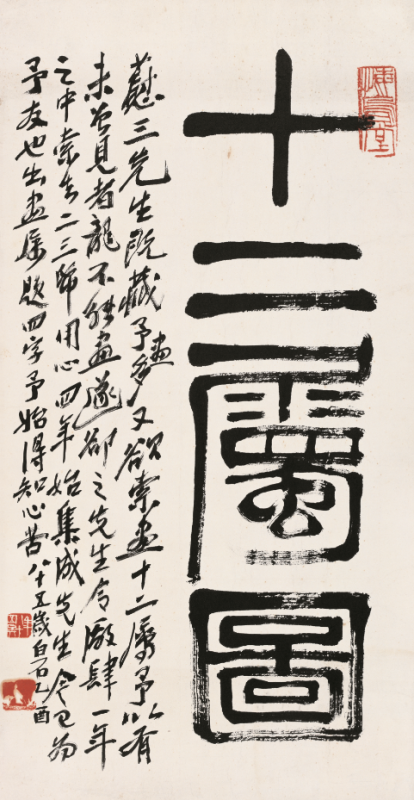 十二屬圖
三先生既藏予畫多又欲索畫十二屬予以有
未曾見者龍不能畫遂却之先生令廠肆一年
之中索去二三幅用心四年始集成先生今已为
予友也出畫屬題四字予始得知心苦八十五歲白石乙酉
悔烏堂